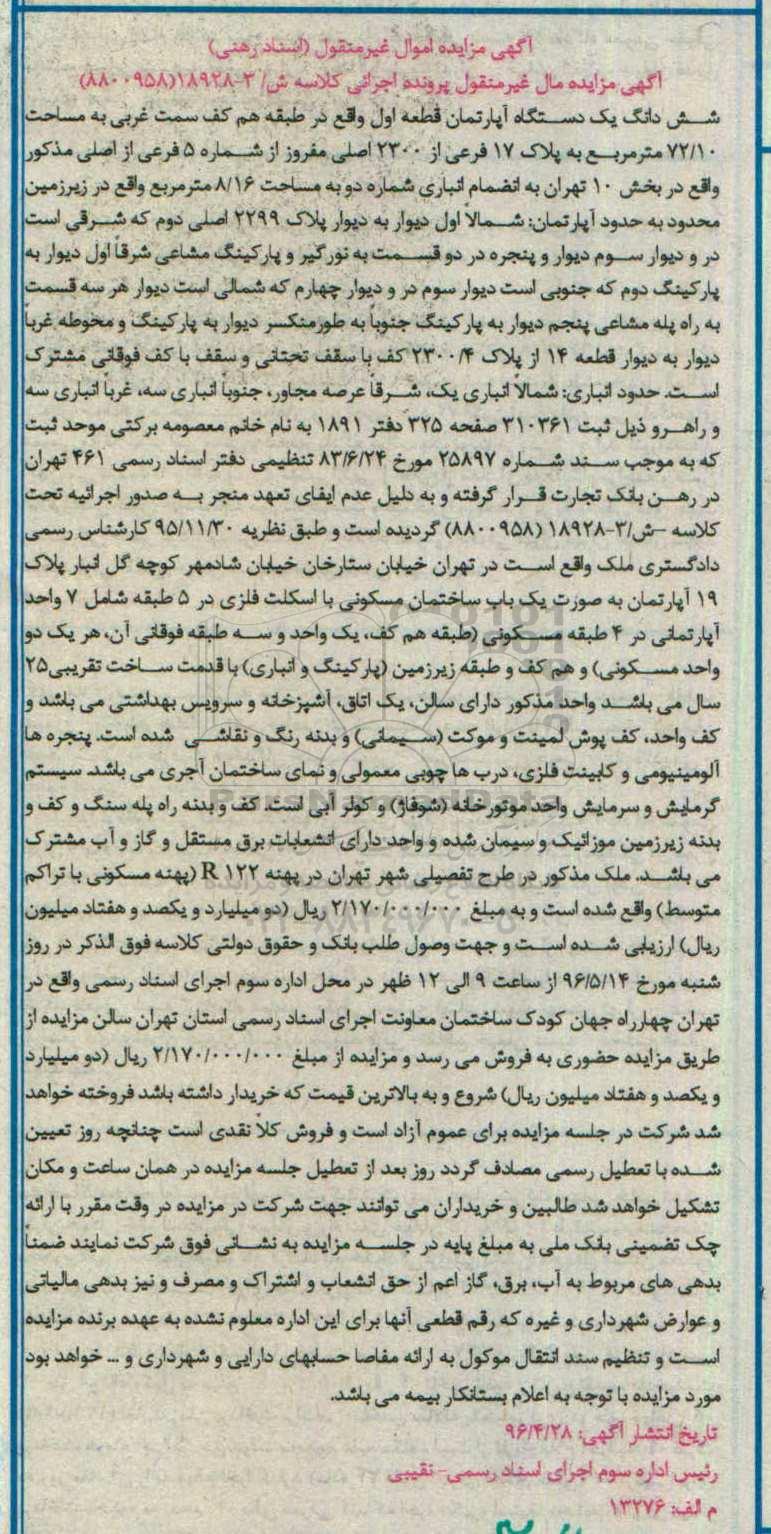 آگهی مزایده اموال غیرمنقول (اسناد رهنی)
آگهی مزایده مال غیرمنقول پرونده اجرائی کلاسه ش/ ۳-۱۸۹۲۸(۸۸۰۰۹۵۸)
شش دانگ یک دستگاه آپارتمان قطعه اول واقع در طبقه هم کف سمت غربی به مساحت
۷۲/۱۰ مترمربع به پلاک ۱۷ فرعی از ۲۳۰۰ اصلی مفروز از شماره ۵ فرعی از اصلی مذکور
واقع در بخش ۱۰ تهران به انضمام انباری شماره دو به مساحت ۸/۱۶ مترمربع واقع در زیرزمین
محدود به حدود آپارتمان: شمالاً اول دیوار به دیوار پلاک ۲۲۹۹ اصلی دوم که شرقی است
در و دیوار سوم دیوار و پنجره در دو قسمت به نورگیر و پارکینگ مشاعی شرقاً اول دیوار به
پارکینگ دوم که جنوبی است دیوار سوم در و دیوار چهارم که شمالی است دیوار هر سه قسمت
به راه پله مشاعی پنجم دیوار به پارکینگ جنوباً به طورمنکسر دیوار به پارکینگ و محوطه غرباً
دیوار به دیوار قطعه ۱۴ از پلاک ۲۳۰۰/۴ کف با سقف تحتانی و سقف با کف فوقانی مشترک
است. حدود انباری: شمالاً انباری یک، شرقاً عرصه مجاور، جنوباً انباری سه، غرباً انباری سه
و راهرو ذیل ثبت ۳۱۰۳۶۱ صفحه ۳۲۵ دفتر ۱۸۹۱ به نام خانم معصومه برکتی موحد ثبت
که به موجب سند شماره ۲۵۸۹۷ مورخ ۸۳/۶/۲۴ تنظیمی دفتر اسناد رسمی ۴۶۱ تهران
در رهن بانک تجارت قرار گرفته و به دلیل عدم ایفای تعهد منجر به صدور اجرائیه تحت
کلاسه -ش/۳-۱۸۹۲۸ (۸۸۰۰۹۵۸) گردیده است و طبق نظریه ۹۵/۱۱/۳۰ کارشناس رسمی
دادگستری ملک واقع است در تهران خیابان ستارخان خیابان شادمهر کوچه گل انبار پلاک
۱۹ آپارتمان به صورت یک باب ساختمان مسکونی با اسکلت فلزی در ۵ طبقه شامل ۷ واحد
آپارتمانی در ۴ طبقه مسکونی (طبقه هم کف، یک واحد و سه طبقه فوقانی آن، هر یک دو
واحد مسکونی) و هم کف و طبقه زیرزمین (پارکینگ و انباری) با قدمت ساخت تقریبی۲۵
سال می باشد واحد مذکور دارای سالن، یک اتاق، آشپزخانه و سرویس بهداشتی می باشد و
کف واحد، کف پوش لمینت و موکت (سیمانی) و بدنه رنگ و نقاشی شده است. پنجره ها
آلومینیومی و کابینت فلزی، درب ها چوبی معمولی و نمای ساختمان آجری می باشد. سیستم
گرمایش و سرمایش واحد موتورخانه (شوفاژ) و کولر آبی است. کف و بدنه راه پله سنگ و کف و
بدنه زیرزمین موزائیک و سیمان شده و واحد دارای انشعابات برق مستقل و گاز و آب مشترک
می باشد. ملک مذکور در طرح تفصیلی شهر تهران در پهنه R ۱۲۲ (پهنه مسکونی با تراکم
متوسط) واقع شده است و به مبلغ ۲/۱۷۰/۰۰۰/۰۰۰ ریال (دو میلیارد و یکصد و هفتاد میلیون
ریال) ارزیابی شده است و جهت وصول طلب بانک و حقوق دولتی کلاسه فوق الذکر در روز
شنبه مورخ ۹۶/۵/۱۴ از ساعت ۹ الی ۱۲ ظهر در محل اداره سوم اجرای اسناد رسمی واقع در
تهران چهارراه جهان کودک ساختمان معاونت اجرای اسناد رسمی استان تهران سالن مزایده از
طریق مزایده حضوری به فروش می رسد و مزایده از مبلغ ۲/۱۷۰/۰۰۰/۰۰۰ ریال (دو میلیارد
و یکصد و هفتاد میلیون ریال) شروع و به بالاترین قیمت که خریدار داشته باشد فروخته خواهد
شد شرکت در جلسه مزایده برای عموم آزاد است و فروش کلاً نقدی است چنانچه روز تعیین
شده با تعطیل رسمی مصادف گردد روز بعد از تعطیل جلسه مزایده در همان ساعت و مکان
تشکیل خواهد شد طالبین و خریداران می توانند جهت شرکت در مزایده در وقت مقرر با ارائه
چک تضمینی بانک ملی به مبلغ پایه در جلسه مزایده به نشانی فوق شرکت نمایند ضمناً
بدهی های مربوط به آب، برق، گاز اعم از حق انشعاب و اشتراک و مصرف و نیز بدهی مالیاتی
و عوارض شهرداری و غیره که رقم قطعی آنها برای این اداره معلوم نشده به عهده برنده مزایده
است و تنظیم سند انتقال موکول به ارائه مفاصا حسابهای دارایی و شهرداری و ... خواهد بود
مورد مزایده با توجه به اعلام بستانکار بیمه می باشد.
تاریخ انتشار آگهی: ۹۶/۴/۲۸
رئیس اداره سوم اجرای اسناد رسمی- نقیبی
م الف: ۱۳۲۷۶